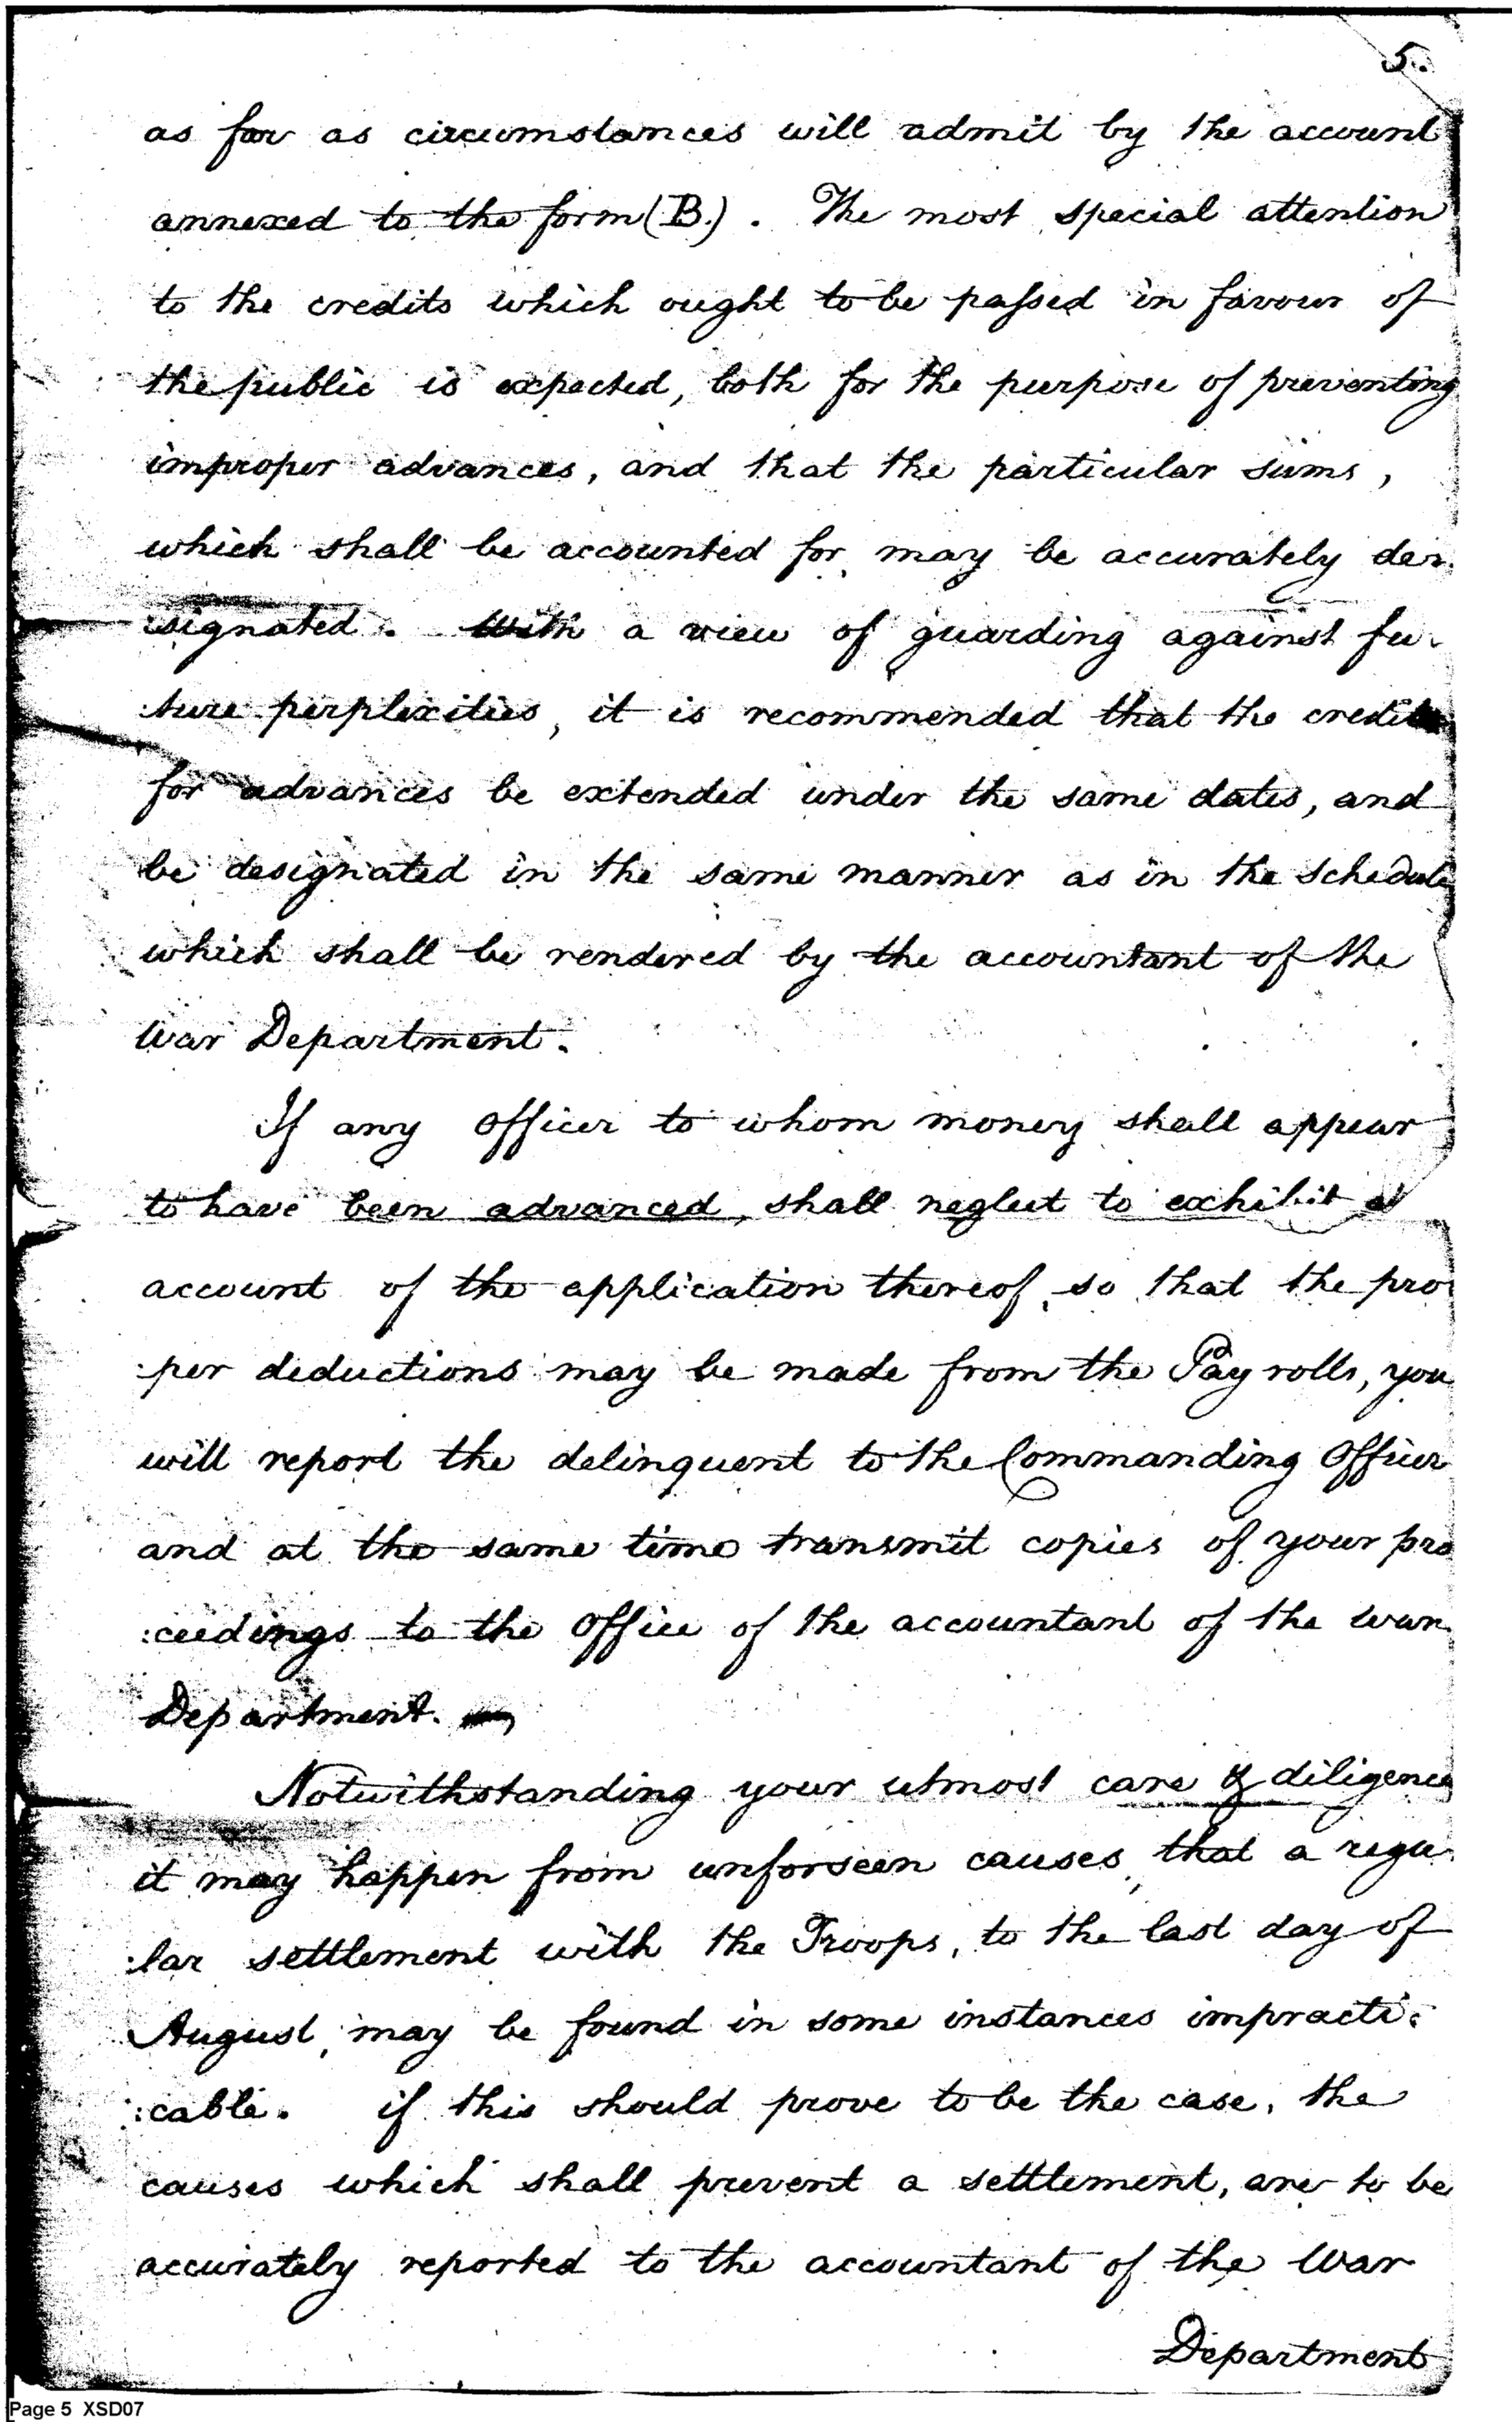 5.
as far as circumstances will admit by the account
annexed to the form (B.). The most special attention
to the credits which ought to be passed in favour of
the public is expected, both for the purpose of preventing
improper advances, and that the particular sums,
which shall be accounted for may be accurately de-
signated. With a view of guarding against fu-
:ture perplexities, it is recommended that the credits
for advances be extended under the same dates, and
be designated in the same manner as in the schedule
which shall be rendered by the accountant of the
War Department.
If any Officer to whom money shall appear
to have been advanced, shall neglect to exhibit
account of the application thereof, so that the pro
:per deductions may be made from the Pay rolls, you
will report the delinquent to the Commanding Officer
and at the same time transmit copies of your pro
:ceedings to the Office of the accountant of the war
Department.
Notwithstanding your utmost care & diligence
it may happen from unforseen causes, that a regu-
:lar settlement with the Troops, to the last day of
August, may be found in some instances impracti:
:cable. if this should prove to be the case, the
causes which shall prevent a settlement, are to be
accurately reported to the accountant of the War
Department
Page 5 XSD07